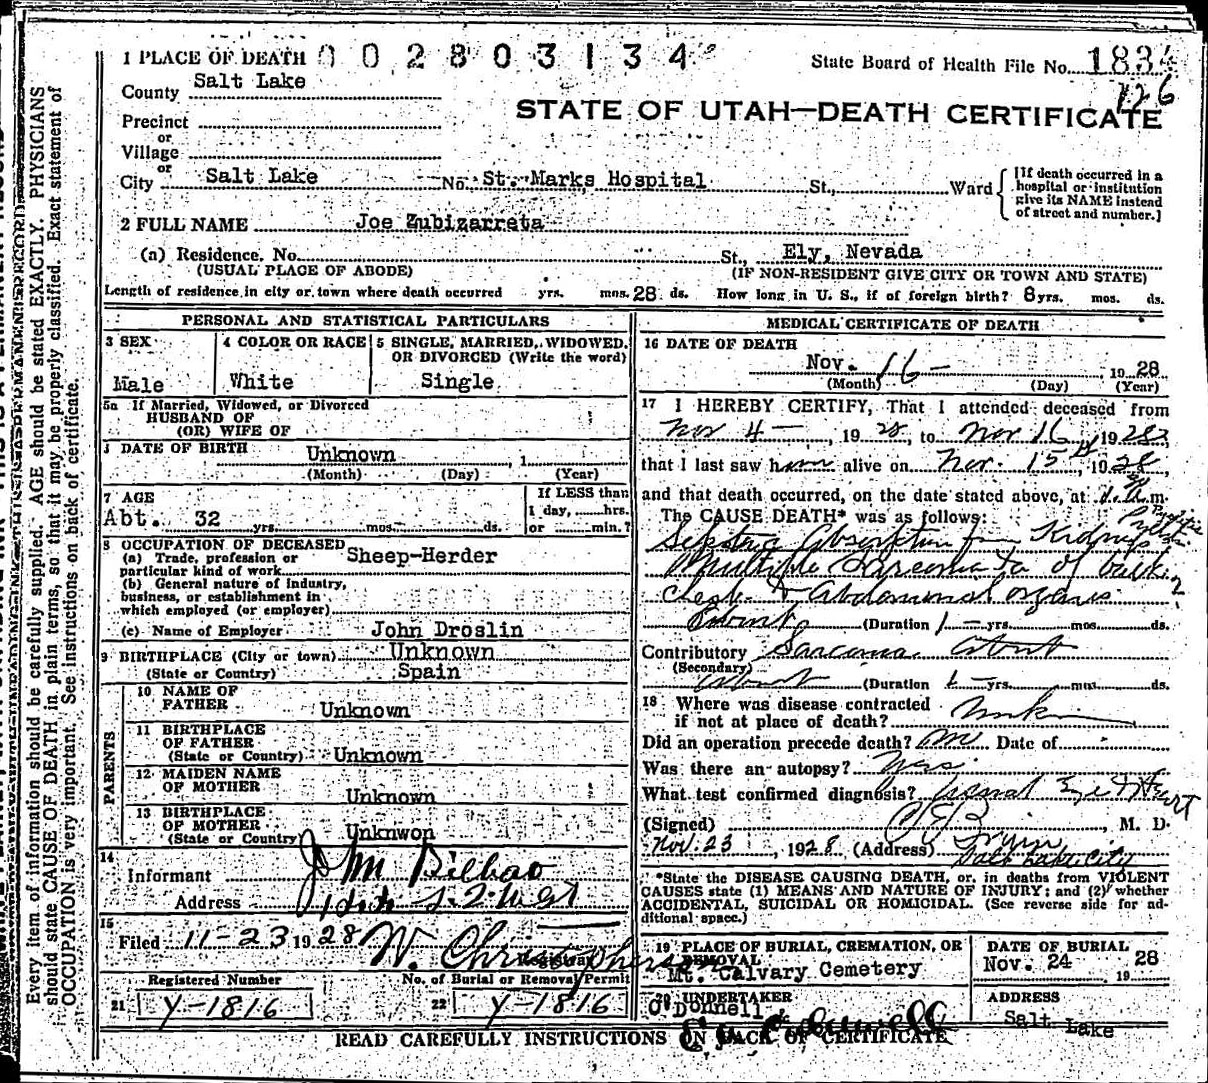 1 PLACE OF DEATH 002803134
State Board of Health File No. 1834
126
County Salt Lake
STATE OF UTAH—DEATH CERTIFICATE
Precinct
or
Village
or
City Salt Lake No. St. Marks Hospital St., Ward
[If death occurred in a hospital or institution give its NAME instead of street and number.]
2 FULL NAME Joe Zubizarreta
(a) Residence. No. St., Ely, Nevada
(USUAL PLACE OF ABODE) (IF NON-RESIDENT GIVE CITY OR TOWN AND STATE)
Length of residence in city or town where death occurred yrs. mos. 28 ds. How long in U. S., if of foreign birth? 8 yrs. mos. ds.
PERSONAL AND STATISTICAL PARTICULARS
3 SEX 4 COLOR OR RACE 5 SINGLE, MARRIED, WIDOWED, OR DIVORCED (Write the word)
Male White Single
5a If Married, Widowed, or Divorced
HUSBAND OF
(OR) WIFE OF
DATE OF BIRTH Unknown , 1
(Month) (Day) (Year)
7 AGE If LESS than
1 day, hrs.
Abt. 32 yrs. mos. ds. or min.?
8 OCCUPATION OF DECEASED
(a) Trade, profession or particular kind of work Sheep-Herder
(b) General nature of industry,
business, or establishment in
which employed (or employer)
(c) Name of Employer John Droslin
9 BIRTHPLACE (City or town) Unknown
(State or Country) Spain
PARENTS
10 NAME OF
FATHER Unknown
11 BIRTHPLACE
OF FATHER
(State or Country) Unknown
12 MAIDEN NAME
OF MOTHER Unknown
13 BIRTHPLACE
OF MOTHER
(State or Country) Unknwon
14
Informant J M Bilbao
Address
15
Filed 11-23 1928 W. Christopherson
Registrar
Registered Number No. of Burial or Removal Permit
21 Y-1816 22 Y-1816
MEDICAL CERTIFICATE OF DEATH
16 DATE OF DEATH
Nov. 16 - 1928
(Month) (Day) (Year)
17 I HEREBY CERTIFY, That I attended deceased from
Nov 4 - , 1928, to Nov 16, 1928,
that I last saw him alive on Nov. 15, 1928,
and that death occurred, on the date stated above, at 1. a.m.
The CAUSE DEATH* was as follows:
Absorption from Kidneys
Multiple Sarcomata of back
Chest & Abdominal organs
(Duration 1 - yrs. mos. ds.
Contributory Sarcoma
(Secondary)
(Duration 1 - yrs. mos. ds.
18 Where was disease contracted
if not at place of death?
Did an operation precede death? No Date of
Was there an autopsy?
What test confirmed diagnosis?
(Signed) , M. D.
Nov. 23, 1928, (Address)
Salt Lake City
*State the DISEASE CAUSING DEATH, or, in deaths from VIOLENT
CAUSES state (1) MEANS AND NATURE OF INJURY; and (2) whether
ACCIDENTAL, SUICIDAL OR HOMICIDAL. (See reverse side for additional space.)
19 PLACE OF BURIAL, CREMATION, OR REMOVAL DATE OF BURIAL
Mt. Calvary Cemetery Nov. 24 1928
20 UNDERTAKER ADDRESS
O'Donnell & Salt Lake
READ CAREFULLY INSTRUCTIONS ON BACK OF CERTIFICATE
Every item of information should be carefully supplied. AGE should be stated EXACTLY. PHYSICIANS
should state CAUSE OF DEATH in plain terms, so that it may be properly classified. Exact statement of
OCCUPATION is very important. See instructions on back of certificate.